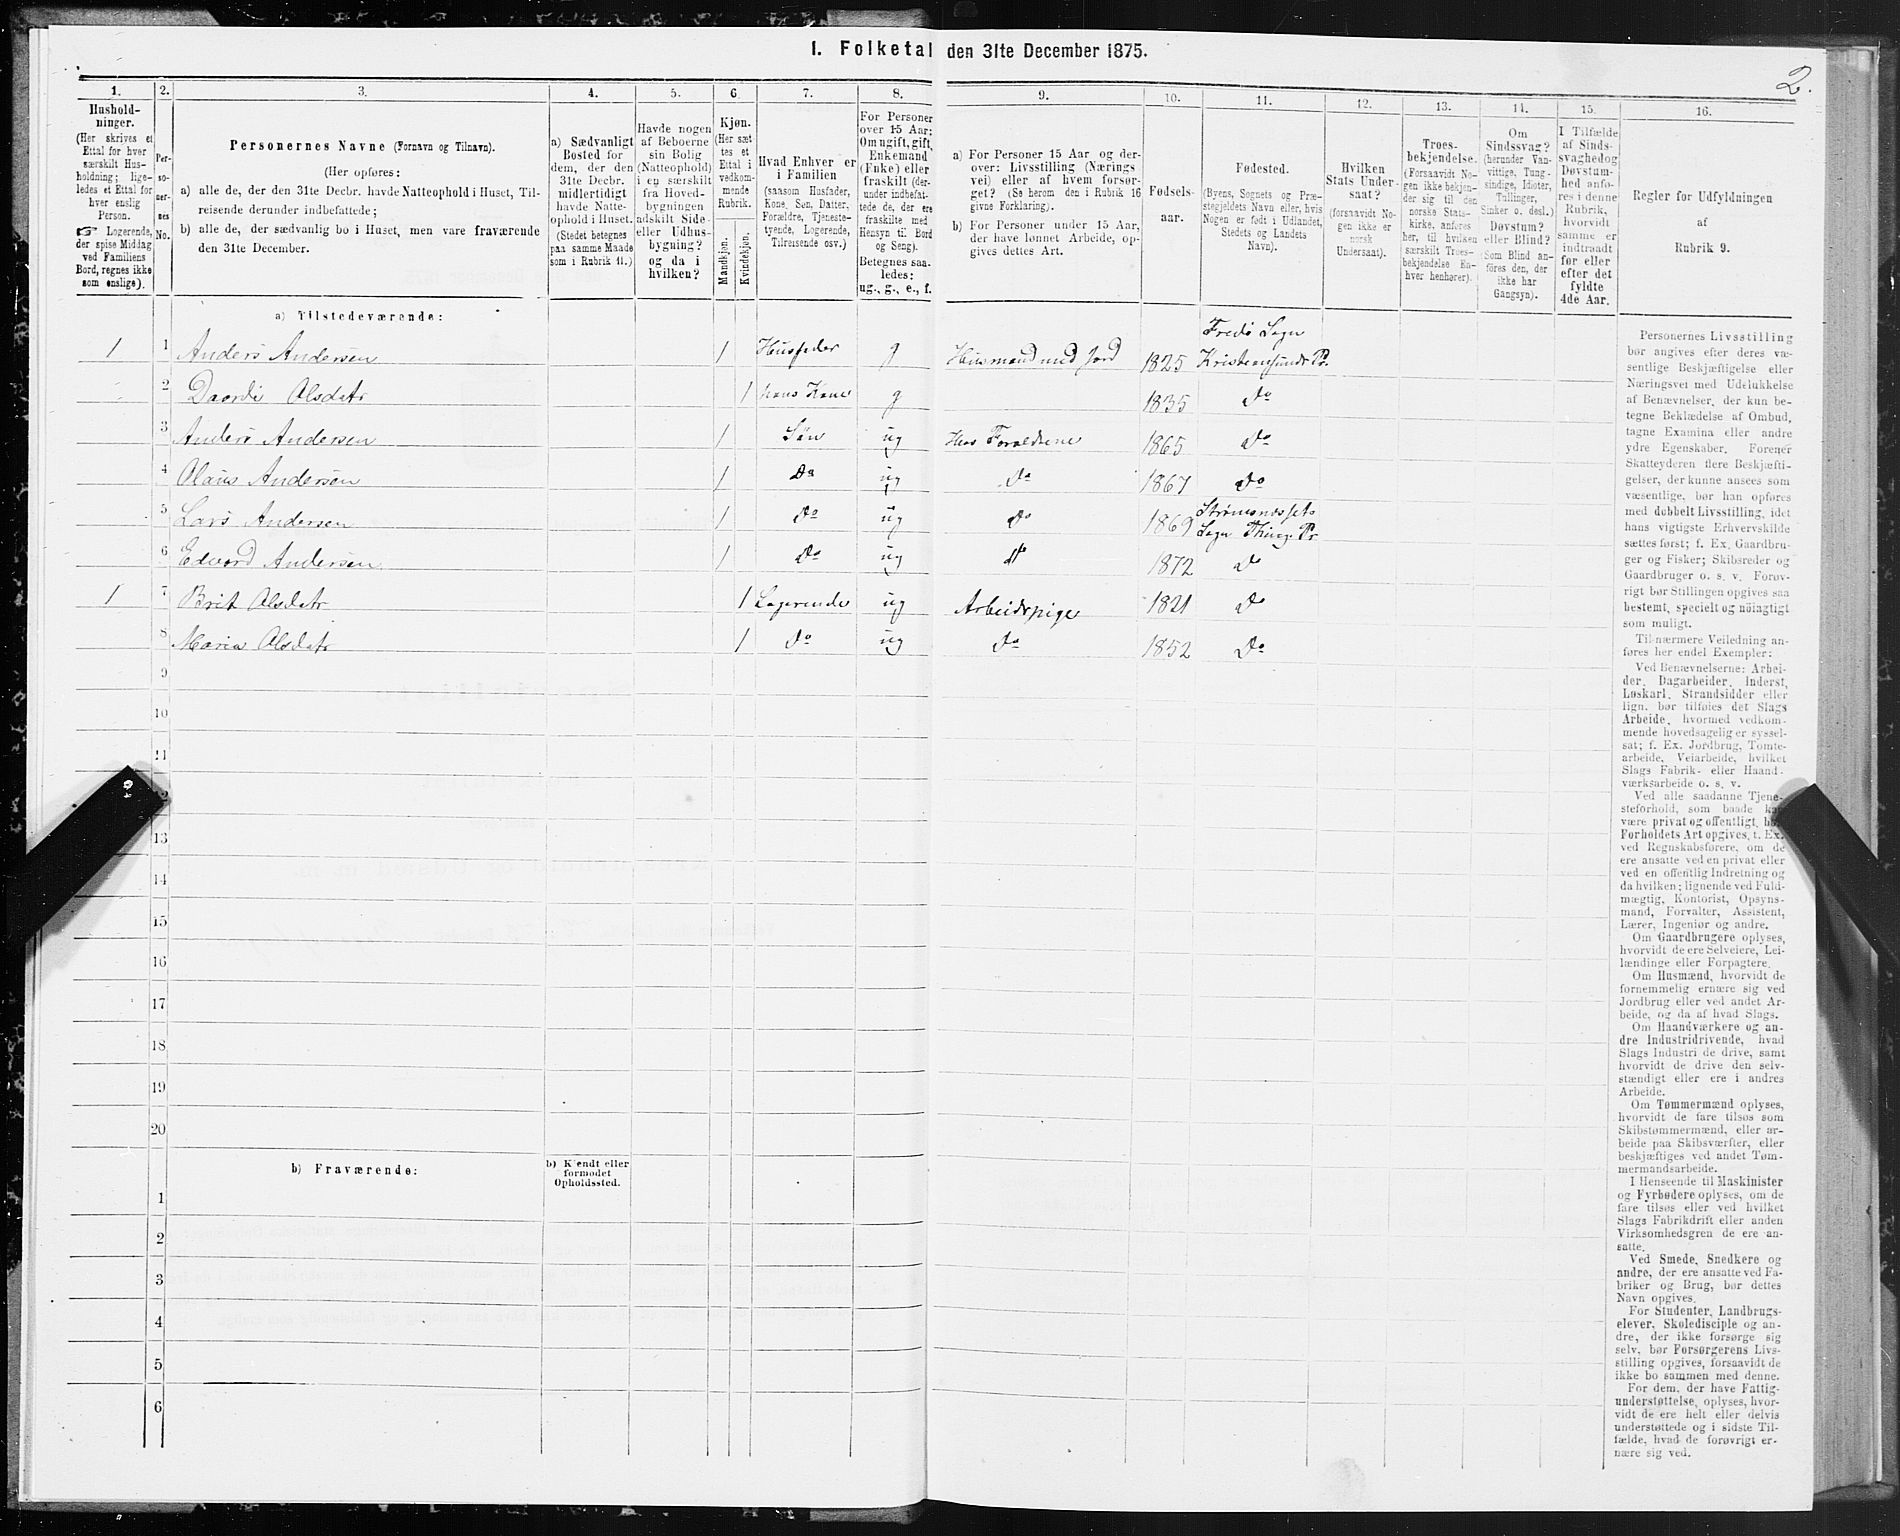 I. Folketal den 31te December 1875.
2.
1.
2.
3.
4.
5.
6.
7.
8.
9.
10.
11.
12.
13.
14.
15.
16.
Hushold-
ninger.
(Her skrives et
Ettal for hver
særskilt Hus-
holdning; lige-
ledes et Ettal for
hver enslig
Person.
☞ Logerende,
der spise Middag
ved Familiens
Bord, regnes ikke
som enslige).
Per-
so-
ner-
nes
No.
Personernes Navne (Fornavn og Tilnavn).
(Her opføres:
a) alle de, der den 31te Decbr. havde Natteophold i Huset, Til-
reisende derunder indbefattede;
b) alle de, der sædvanlig bo i Huset, men vare fraværende
den 31te December.
a) Sædvanligt
Bosted for
dem, der den
31te Decbr.
midlertidigt
havde Natte-
ophold i Huset.
(Stedet betegnes
paa samme Maade
som i Rubrik 11.)
Havde nogen
af Beboerne
sin Bolig
(Natteophold)
i en særskilt
fra Hoved-
bygningen
adskilt Side-
eller Udhus-
bygning?
og da i
hvilken?
Kjøn.
(Her sæt-
tes et
Ettal i
vedkom-
mende
Rubrik.
Mandkjøn.
Kvindekjøn.
Hvad Enhver er
i Familien
(saasom Husfader,
Kone, Søn, Datter,
Forældre, Tjeneste-
tyende, Logerende,
Tilreisende osv.)
For Personer
over 15 Aar:
Om ugift, gift,
Enkemand
(Enke) eller
fraskilt (der-
under indbefat-
tede de, der ere
fraskilte med
Hensyn til Bord
og Seng).
Betegnes saa-
ledes:
ug., g., e., f.
a) For Personer 15 Aar og der-
over: Livsstilling (Nærings-
vei) eller af hvem forsør-
get? (Se herom den i Rubrik 16
givne Forklaring).
b) For Personer under 15 Aar,
der have lønnet Arbeide, op-
gives dettes Art.
Fødsels-
aar.
Fødested.
(Byens, Sognets og Præ-
stegjeldets Navn eller, hvis
Nogen er født i Udlandet,
Stedets og Landets
Navn).
Hvilken
Stats Under-
saat?
(forsaavidt No-
gen ikke er
norsk
Undersaat).
Troes-
bekjendelse.
(Forsaavidt No-
gen ikke bekjen-
der sig til den
norske Stats-
kirke, anføres
her, til hvilken
særskilt Troes-
bekjendelse En-
hver henhører).
Om
Sindssvag?
(herunder Van-
vittige, Tung-
sindige, Idioter,
Tullinger,
Sinker o. desl.)
Døvstum?
eller Blind?
(Som Blind an-
føres den, der
ikke har
Gangsyn).
I Tilfælde
af Sinds-
svaghed og
Døvstum-
hed anfø-
res i denne
Rubrik,
hvorvidt
samme er
indtraadt
før eller
efter det
fyldte
4de Aar.
Regler for Udfyldningen
af
Rubrik 9.
a) Tilstedeværende:
Fredø Sogn
1 1 Anders Andersen 1 Husfader g Husmand med Jord 1825 Kristianssunds Pr.
2 Daardi Olsdatr 1 hans Kone g 1835 Do
3 Anders Andersen 1 Søn ug Hos Forældrene 1865 Do
4 Olaus Andersen 1 Do ug Do 1867 Do
Strømsnæssets
5 Lars Andersen 1 Do ug Do 1869 Sogn Thing. Pr
6 Edvard Andersen 1 Do ug Do 1872 Do
1 7 Brit Olsdatr 1 Logerende ug Arbeidspige 1821 Do
8 Maria Olsdatr 1 Do ug Do 1852 Do
9
10
11
13
14
15
16
17
18
19
20
b) Fraværende:
b) Kjendt eller
formodet
Opholdssted.
1
2
3
4
5
6
Personernes Livsstilling
bør angives efter deres væ-
sentlige Beskjæftigelse eller
Næringsvei med Udelukkelse
af Benævnelser, der kun be-
tegne Beklædelse af Ombud,
tagne Examina eller andre
ydre Egenskaber. Forener
Skatteyderen flere Beskjæfti-
gelser, der kunne ansees som
væsentlige, bør han opføres
med dobbelt Livsstilling, idet
hans vigtigste Erhvervskilde
sættes først; f. Ex. Gaardbru-
ger og Fisker; Skibsreder og
Gaardbruger o. s. v. Forøv-
rigt bør Stillingen opgives saa
bestemt, specielt og nøiagtigt
som muligt.
Til nærmere Veiledning an-
føres her endel Exempler:
Ved Benævnelserne: Arbei-
der, Dagarbeider, Inderst,
Løskarl, Strandsidder eller
lign. bør tilføies det Slags
Arbeide, hvormed vedkom-
mende hovedsagelig er syssel-
sat; f. Ex. Jordbrug, Tomte-
arbeide, Veiarbeide, hvilket
Slags Fabrik- eller Haand-
værksarbeide o. s. v.
Ved alle saadanne Tjene-
steforhold, som baade kan
være privat og offentligt, bør
Forholdets Art opgives, t. Ex.
ved Regnskabsførere, om de
ere ansatte ved en privat eller
ved en offentlig Indretning og
da hvilken; lignende ved Fuld-
mægtig, Kontorist, Opsyns-
mand, Forvalter, Assistent,
Lærer, Ingeniør og andre.
Om Gaardbrugere oplyses,
hvorvidt de ere Selveiere, Lei-
lændinge eller Forpagtere.
Om Husmænd, hvorvidt de
fornemmelig ernære sig ved
Jordbrug eller ved andet Ar-
beide, og da af hvad Slags.
Om Haandværkere og an-
dre Industridrivende, hvad
Slags Industri de drive, samt
hvorvidt de drive den selv-
stændigt eller ere i andres
Arbeide.
Om Tømmermænd oplyses,
hvorvidt de fare tilsøs som
Skibstømmermænd, eller ar-
beide paa Skibsværfter, eller
beskjæftiges ved andet Tøm-
mermandsarbeide.
I Henseende til Maskinister
og Fyrbødere oplyses, om de
fare tilsøs eller ved hvilket
Slags Fabrikdrift eller anden
Virksomhedsgren de ere an-
satte.
Ved Smede, Snedkere og
andre, der ere ansatte ved Fa-
briker og Brug, bør dettes
Navn opgives.
For Studenter, Landbrugs-
elever, Skoledisciple og an-
dre, der ikke forsørge sig
selv, bør Forsørgerens Livs-
stilling opgives, forsaavidt de
ikke bo sammen med denne.
For dem, der have Fattig-
understøttelse, oplyses, hvor-
vidt de ere helt eller delvis
understøttede og i sidste Til-
fælde, hvad de forøvrigt er-
nære sig ved.